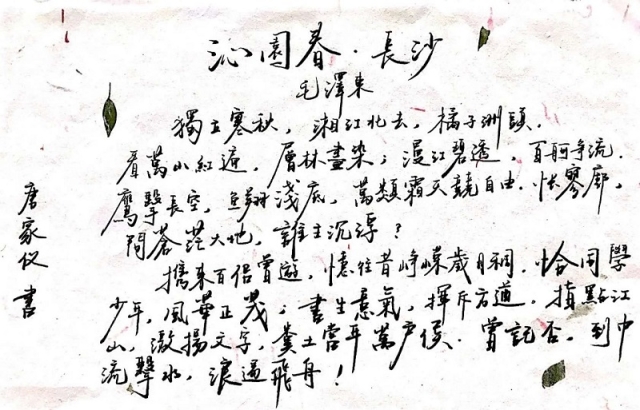 沁園春·長沙
毛澤東
獨立寒秋，湘江北去，橘子洲頭．
看萬山紅遍，層林盡染；漫江碧透，百舸争流．
鷹擊長空，魚翔淺底，萬類霜天競自由．悵寥廓，
問蒼茫大地，誰主沉浮？
攜來百侶曾遊，憶往昔崢嶸歲月稠．恰同學
少年，風華正茂；書生意氣，揮斥方遒．指點江
山，激揚文字，糞土當年萬戶侯．曾記否，到中
流擊水，浪遏飛舟！
唐家仪書